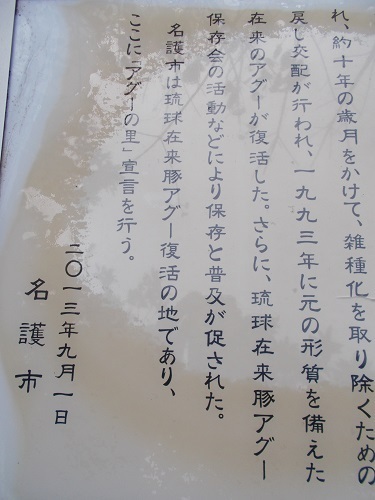 れ、約十年の歳月をかけて、雑種化を取り除くための
戻し交配が行われ、一九九三年に元の形質を備えた
在来のアグーが復活した。さらに、琉球在来豚アグー
保存会の活動などにより保存と普及が促された。
名護市は琉球在来豚アグー復活の地であり、
ここに「アグーの里」宣言を行う。
二〇一三年九月一日
名護市